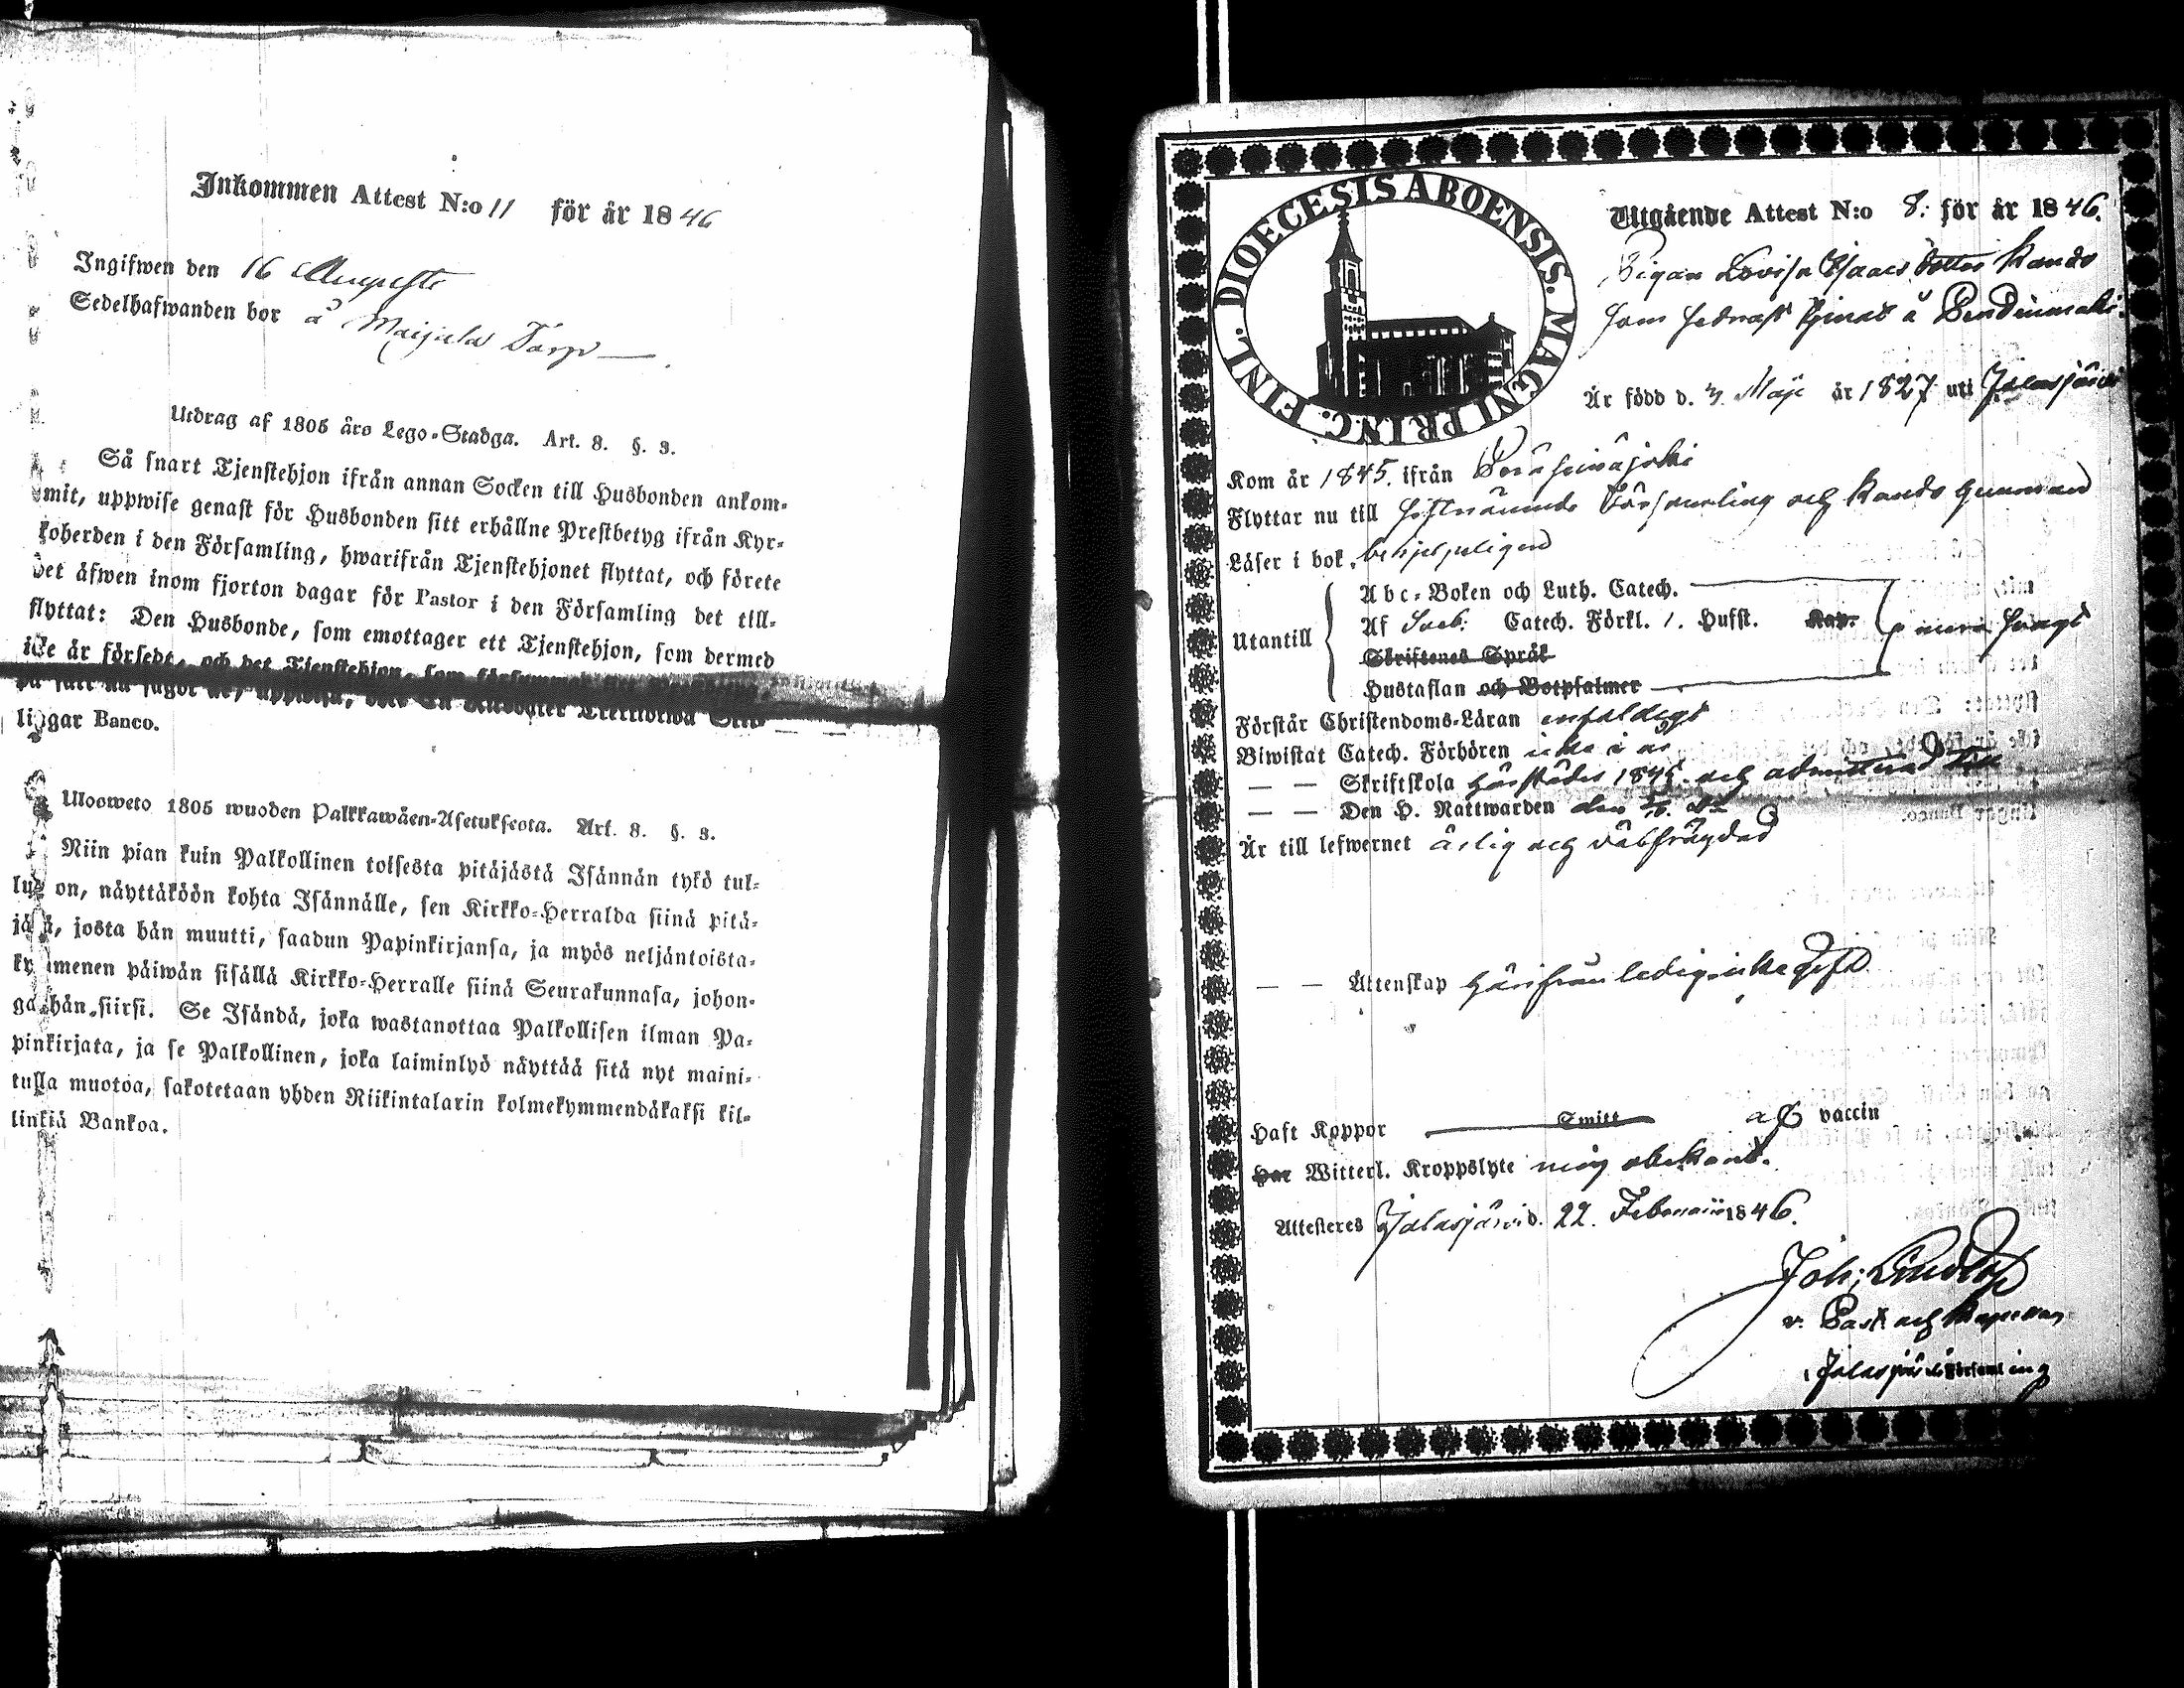 Inkommen Attest N:o 11 för år 1846
Ingifwen den 16 Augusti
Sedelhafwanden bor å Maijala Torp
Utdrag af 1805 års Lego-Stadga. Art. 8. §. 3.
Så snart Tjenstehjon ifrån annan Socken till Husbonden ankom-
mit, uppwise genast för Husbonden sitt erhållne Prestbetyg ifrån Kyr-
koherden i den Församling, hwarifrån Tjenstehjonet flyttat, och förete
det äfwen inom fjorton dagar för Pastor i den Församling det till-
flyttat: Den Husbonde, som emottager ett Tjenstehjon, som dermed
icke är försedt, och det Tjenstehjon, som
lingar Banco.
Ulosweto 1805 wuoden Palkkawäen-Asetuksesta. Art. 8. §. 3.
Niin pian kuin Palkollinen toisesta pitäjästä Isännän tykö tul-
lut on, näyttäköön kohta Isännälle, sen Kirkko-Herralda siinä pitä-
jäsä, josta hän muutti, saadun Papinkirjansa, ja myös neljäntoista-
kymmenen päiwän sisällä Kirkko-Herralle siinä Seurakunnasa, johon-
ga hän siirsi. Se Isändä, joka wastanottaa Palkollisen ilman Pa-
pinkirjata, ja se Palkollinen, joka laiminlyö näyttää sitä nyt maini-
tulla muotoa, sakotetaan yhden Riikintalarin kolmekymmendäkaksi kil-
linkiä Bankoa.
DIOECESIS ABOENSIS. MAGNI PRINC. FINL.
Utgående Attest N:o 8. för år 1846.
Pigan Lovisa Isaacsdotter Kando
som sednast tjenat å
Är född d. Maji år 1827 uti Jalasjärvi
Kom år 1845. ifrån Peräseinäjoki
Flyttar nu till sistnämnde Församling och Kando hemman
Läser i bok. behjelpeligen
Utantill
Abc-Boken och Luth. Catech.
Af Sveb. Catech. Förkl. 1. Hufst. Kap.
Skriftenes Språk
Hustaflan och Botpsalmer
svagt
Förstår Christendoms-Läran enfaldigt
Biwistat Catech. Förhören icke i år
— — Skriftskola härstädes 1845 och admitterad till
— — Den H. Nattwarden den
Är till lefwernet ärlig och välfrägdad
— — Ättenskap härifrån ledig icke
Haft Koppor Smitt af vaccin
Har Witterl. Kroppslyte mig obekant.
Attesteres Jalasjärvi d. 22. Februarii 1846.
Joh:
v. Past och Kapellan
i Jalasjärvi Församling